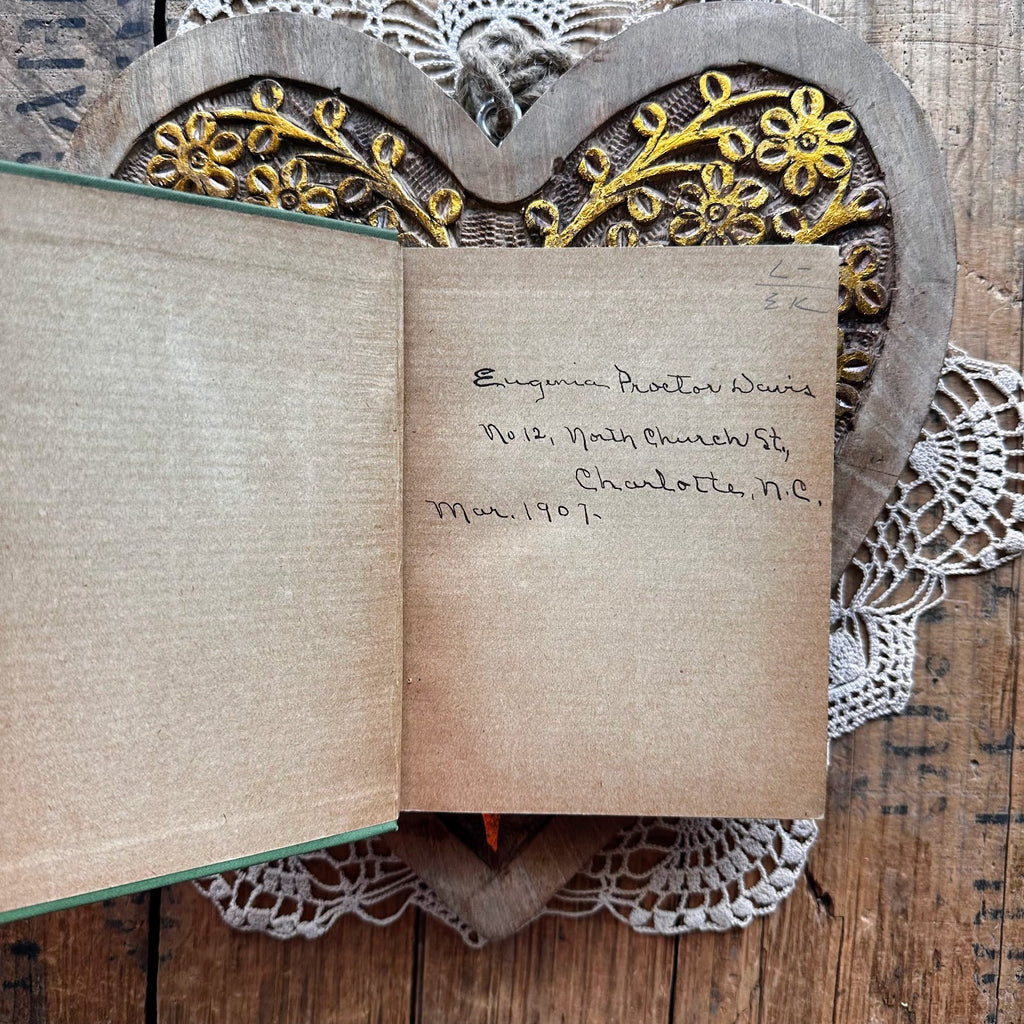 L-
EK
Eugenia Proctor Davis
No 12, North Church St.,
Charlotte, N.C.
Mar. 1907.